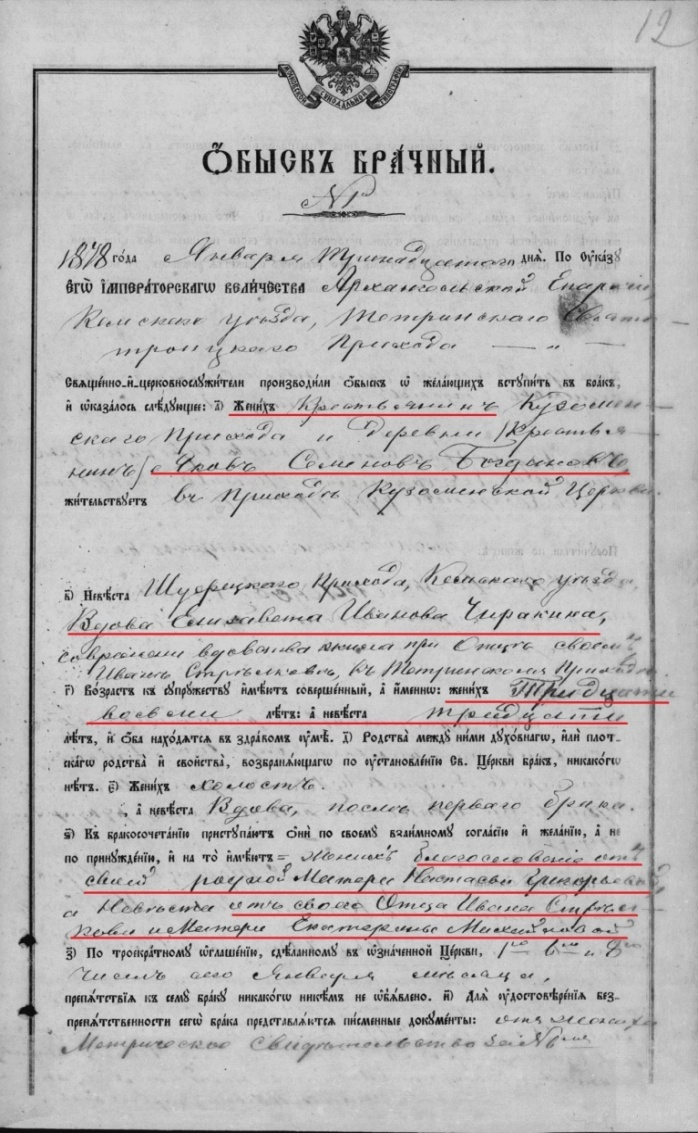 12
ОБЫСКЪ БРАЧНЫЙ.
№
1878 года Января тринадцатаго дня. По Указу
ЕГО ИМПЕРАТОРСКАГО ВЕЛИЧЕСТВА Архангельской Епархіи,
Кемскаго уѣзда, Тетринскаго Свято
троицкаго Прихода — „ —
Священно-и-церковнослужители производили обыскъ о желающихъ вступить въ бракъ,
и оказалось слѣдующее: а) Женихъ Крестьянинъ Кузомен-
скаго Прихода и деревни (Крестья-
нинъ) Яковъ Семеновъ Богдановъ,
жительствуетъ въ приходѣ Кузоменской Церкви.
в) Невѣста Шуерецкаго Прихода, Кемскаго уѣзда,
Вдова Елизавета Иванова Чиракина,
со времени вдовства жила при Отцѣ своемъ
Иванѣ Стрѣлковѣ, въ Тетринскомъ Приходѣ.
г) Возрастъ къ супружеству имѣютъ совершенный, а именно: женихъ Тридцати
восьми лѣтъ: а невѣста тридцати
лѣтъ, и оба находятся въ здравомъ умѣ. д) Родства между ними духовнаго, или плот-
скаго родства и свойства, возбраняющаго по установленію Св. Церкви бракъ, никакого
нѣтъ. е) Женихъ холостъ.
, а невѣста Вдова, послѣ перваго брака.
ѕ) Къ бракосочетанію приступаютъ они по своему взаимному согласію и желанію, а не
по принужденію, и на то имѣютъ = женихъ благословеніе отъ
своей родной Матери Настасьи Григорьевой,
а Невѣста отъ своего Отца Ивана Стрѣл-
кова и Матери Екатерины Михайловой
з) По троекратному оглашенію, сдѣланному въ означенной Церкви, 1го 6го и 8го
числъ сего Января мѣсяца,
препятствія къ сему браку никакого никѣмъ не объявлено. и) Для удостовѣренія без-
препятственности сего брака представляются писменные документы: отъ жениха
Метрическое свидѣтельство за №